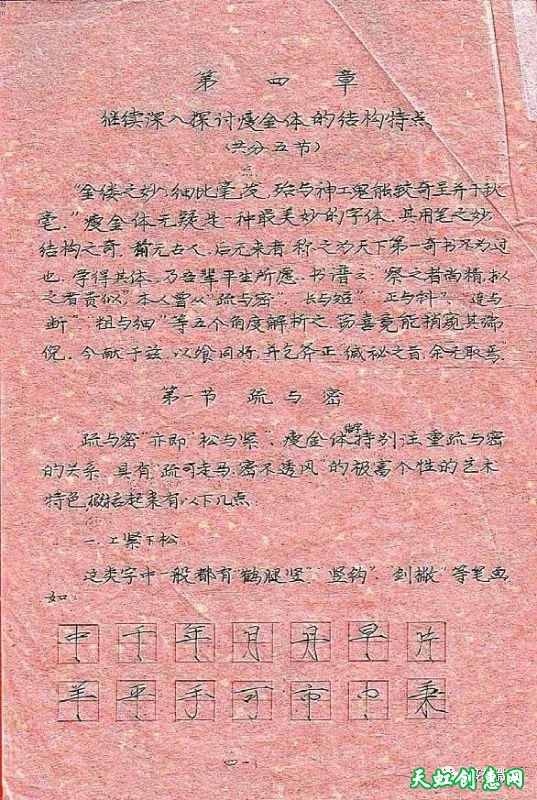 第四章
继续深入探讨瘦金体的结构特点
(共分五节)
“金缕之妙，细比毫发，殆与神工鬼能较奇至并于秋
毫。”瘦金体无疑是一种最美妙的字体，其用笔之妙
结构之奇，前无古人，后无来者，称之为天下第一奇书不为过
也。学得其体，乃吾辈平生所愿。书谱云：察之者尚精，拟
之者贵似”。本人曾从“疏与密”、长与短”、正与斜”、连与
断”、粗与细”等五个角度解析之，窃喜竟能稍窥其端
倪。今献于兹，以飨同好，并乞斧正，缄秘之旨，余无取焉。
第一节 疏与密
疏与密”亦即“松与紧”，瘦金体特别注重疏与密
的关系，具有“疏可走马，密不透风”的极富个性的艺术
特色，概括起来有以下几点：
一、上紧下松
这类字中一般都有“鹤腿竖”、竖钩”、剑撇”等笔画
如：
中 千 年 月 丹 早 片
羊 平 手 可 市 巾 秉
四-1
天虹创意网